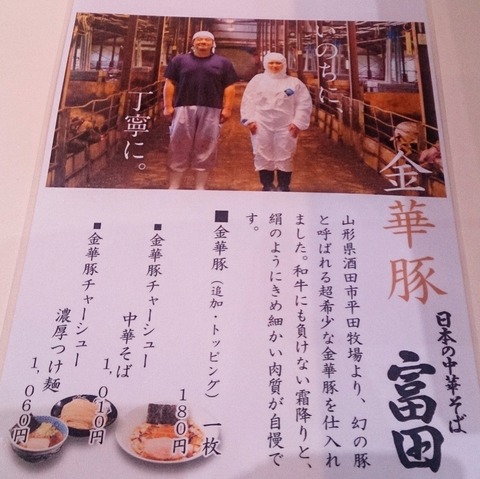 いのちに、
丁寧に。
金華豚
日本の中華そば
富田
山形県酒田市平田牧場より、幻の豚
と呼ばれる超希少な金華豚を仕入れ
ました。和牛にも負けない霜降りと、
絹のようにきめ細かい肉質が自慢で
す。
■金華豚（追加・トッピング）一枚
180円
■金華豚チャーシュー
中華そば
1,010円
■金華豚チャーシュー
濃厚つけ麺
1,060円